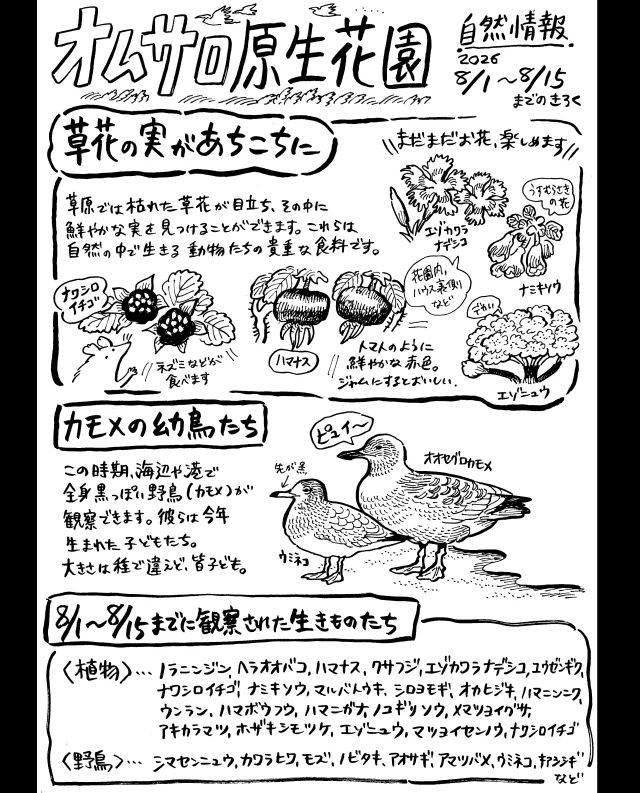 オムサロ原生花園
自然情報
2026
8/1〜8/15
までのきろく
草花の実があちこちに
\\まだまだお花、楽しめます//
草原では枯れた草花が目立ち、その中に
鮮やかな実を見つけることができます。これらは
自然の中で生きる動物たちの貴重な食料です。
エゾカワラ
ナデシコ
うすむらさき
の花
ナミキソウ
ナワシロ
イチゴ
ネズミなどが
食べます
ハマナス
花園内、
ハウス裏側
など
トマトのように
鮮やかな赤色。
ジャムにするとおいしい.
でかい
エゾニュウ
カモメの幼鳥たち
この時期、海辺や港で
全身黒っぽい野鳥(カモメ)が
観察できます。彼らは今年
生まれた子どもたち。
大きさは種で違えど、皆子ども。
ピュイ〜
先が黒
ウミネコ
オオセグロカモメ
8/1〜8/15までに観察された生きものたち
〈植物〉… ノラニンジン, ヘラオオバコ, ハマナス, クサフジ, エゾカワラナデシコ, ユウゼンギク,
ナワシロイチゴ, ナミキソウ, マルバトウキ, シロヨモギ, オカヒジキ, ハマニンニク,
ウンラン, ハマボウフウ, ハマニガナ, ノコギリソウ, メマツヨイグサ,
アキカラマツ, ホザキシモツケ, エゾニュウ, マツヨイセンノウ, ナワシロイチゴ
〈野鳥〉… シマセンニュウ, カワラヒワ, モズ, ノビタキ, アオサギ, アマツバメ, ウミネコ, キアシシギ
など